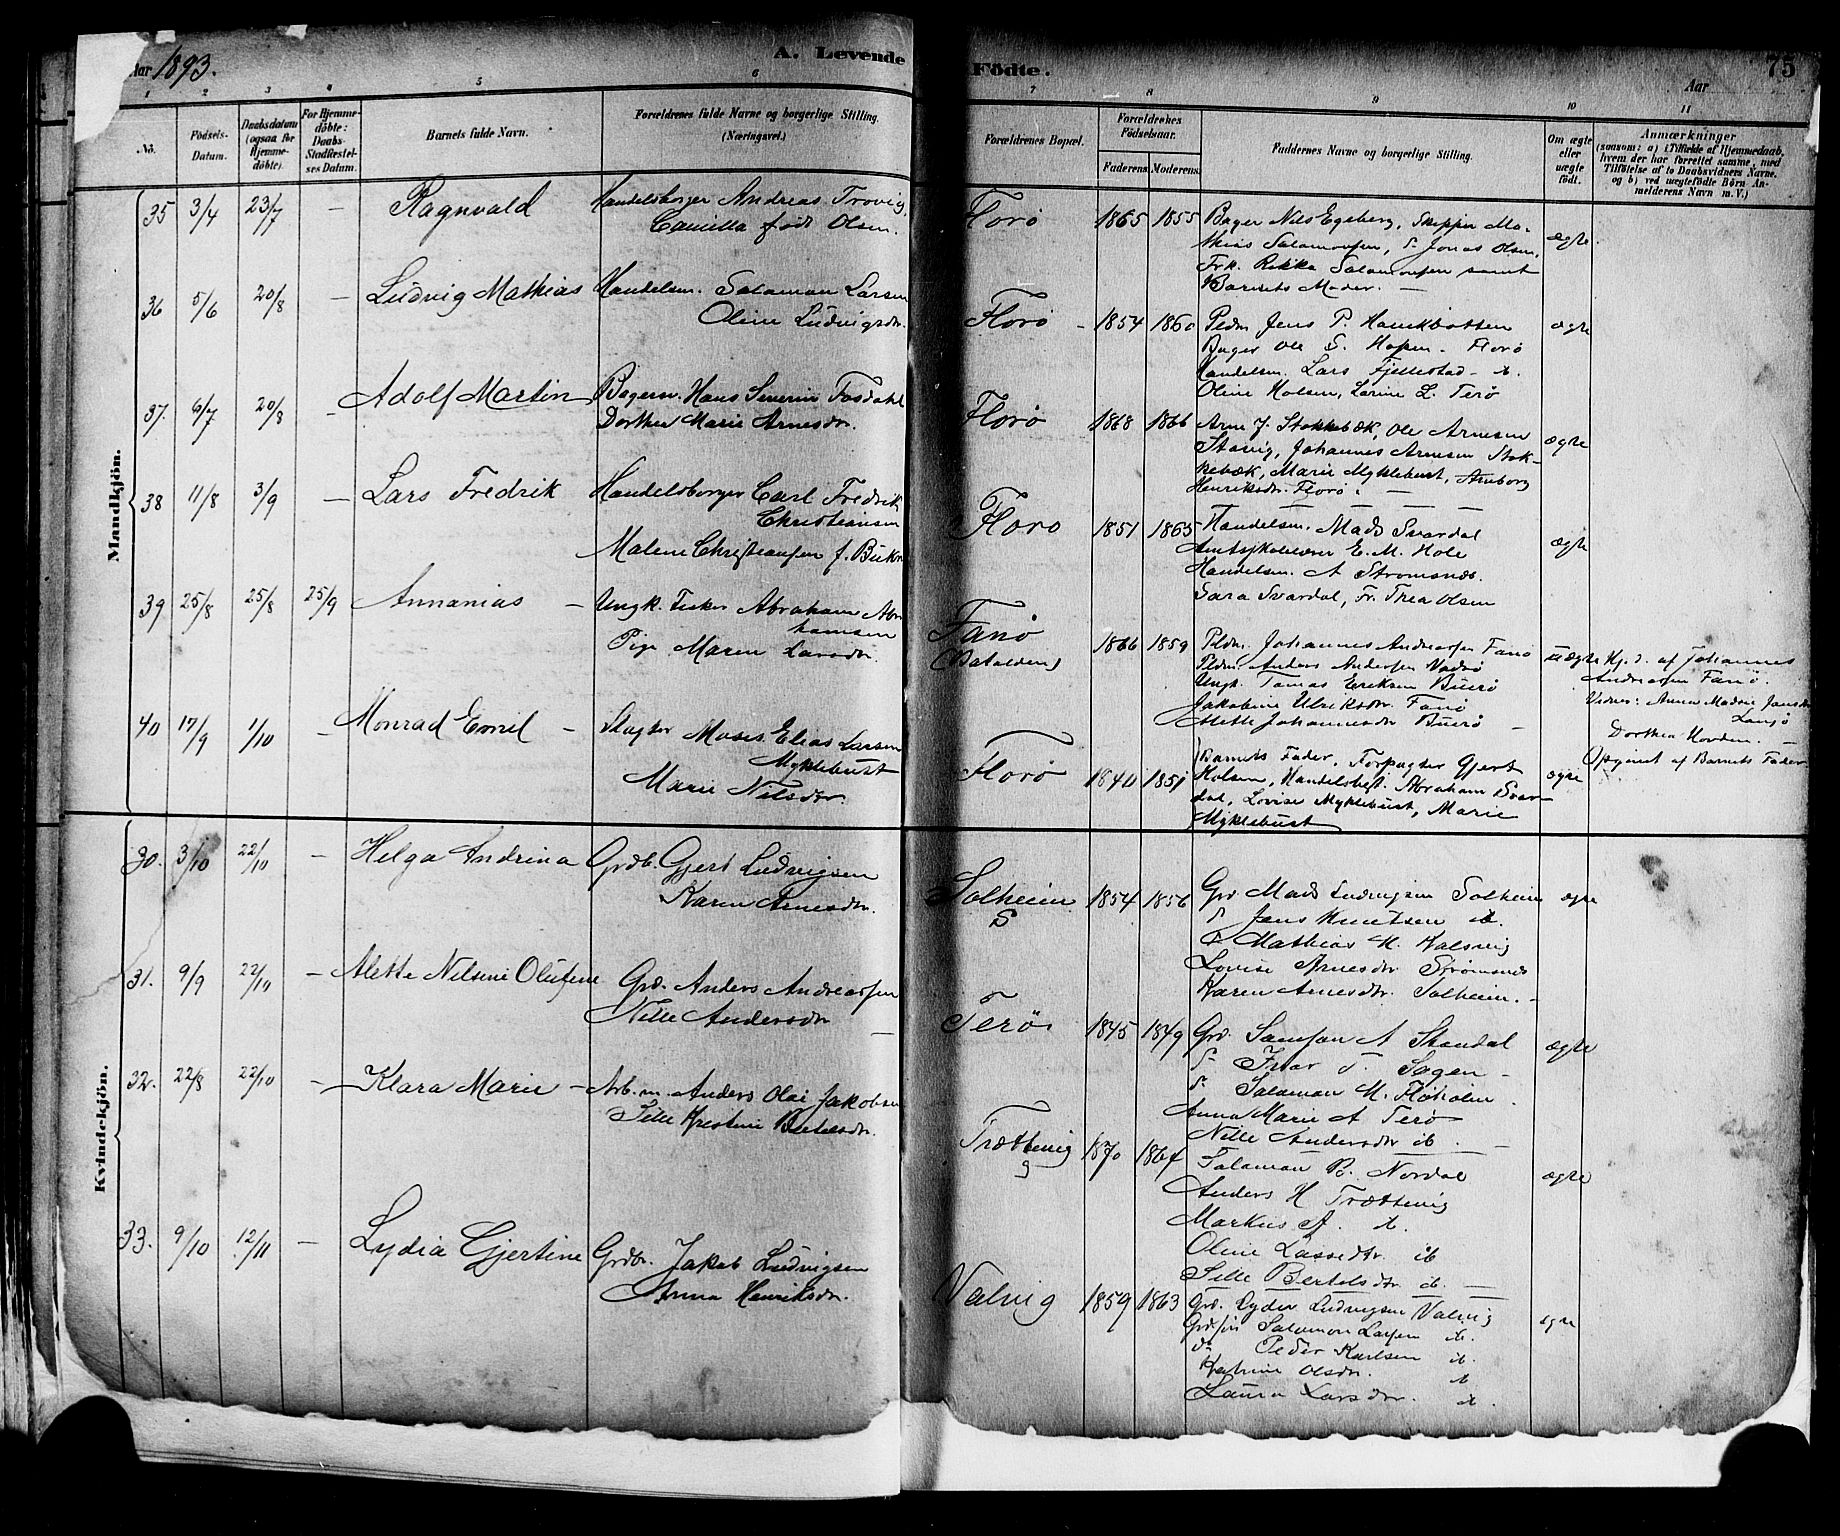 Aar 1893.
A. Levende
Födte.
75
Aar
1 2 3 4 5 6 7 8 9 10 11
No.
Födsels-Datum.
Daabsdatum (ogsaa for Hjemmedöbte).
For Hjemmedöbte: Daabs-Stadfæstelses Datum.
Barnets fulde Navn.
Forældrenes fulde Navne og borgerlige Stilling.
(Næringsvei.)
Forældrenes Bopæl.
Forældrenes Födselsaar.
Faderens Moderens
Faddernes Navne og borgerlige Stilling.
Om ægte eller uægte födt.
Anmærkninger
(saasom: a) i Tilfælde af Hjemmedaab,
hvem der har forrettet samme, med
Tilföielse af to Daabsvidners Navne.
og b) ved uægtefödte Börn An-
melderens Navn m. V.)
Mandkjön.
35 3/4 23/7 — Ragnvald
Handelsborger Andreas Trovig,
Camilla født Olsen.
Florø 1865 1855
Bager Nils Egeberg, Skipper Ma-
thias Salamonsen, d. Jonas Olsen,
Frk. Rikka Salamonsen samt
Barnets Moder. —
ægte
36 5/6 20/8 — Ludvig Mathias
Handelsm. Salamon Larsen
Oline Ludvigsdr.
Florø - 1854 1860
Pldm Jens P.
Bager Ole S. Hopen. Florø
Handelsm. Lars Fjellestad - ib.
Oline Holsen, Larine L. Terø
ægte
37. 6/7 20/8 - Adolf Martin
Bagersv. Hans Severin Fosdahl
Dorthea Marie Arnesdr.
Florø 1868 1866
Arne J. Stokkebæk, Ole Arnesen
Stavig, Johannes Arnesen Stok-
kebæk, Marie Myklebust, Anborg
Henriksdr. Florø. —
ægte
38 11/8 3/9 — Lars Fredrik
Handelsborger Carl Fredrik
Christiansen
Malene Christiansen f.
Floro 1851 1865
Handelsm. Mads Svardal
Amtsskolelærer E. M. Hole
Handelsm. A Strømsnes.
Sara Svardal, Fr. Thea Olsen
ægte
39 25/8 25/8 25/9 Annanias —
Ungk. Fisker Abraham Abra
hamsen
Pige Maren Larsdr.
Fanø
(Batalden) 1866 1859
Pldm. Johannes Andreasen Fanø
Pldm. Anders Andersen Vadø
Ungk. Tomas Eriksen Buerø
Jakobine Ulriksdr. Fanø
Alette Johannesdr Buerø —
uægte
Hj. d. af Johannes
Andreasen Fanø.
Vidner: Anna Madsie Jansdr
Lansø
Dorthea Hovden. —
Opgivet af Barnets Fader
40 17/9 1/10 — Monrad Emil —
Slagter Moses Elias Larsen
Myklebust
Marie Nilsdr.
Florø 1840 1851
Barnets Fader, Forpagter Gjert
Holsen, Handelsbest. Abraham Svar-
dal, Lovise Myklebust, Marie
Myklebust
ægte
Kvindekjön.
30. 3/10 22/10 — Helga Andrina
Grdb. Gjert Ludvigsen
Karen Arnesdr.
Solheim
S 1854 1856
Gr. Mads Ludvigsen Solheim
d. Jens Knutsen ib.
d. Mathias H. Kalsvig
Lovise Arnesdr Strømsnes
Karen Arnesdr. Solheim. -
ægte
31. 9/9 22/10 — Alette Nilsine Olufine
Grd. Anders Andreassen
Nille Andersdr —
Terø 1845 1849
Grd. Samson A Standal
d. Ivar T. Sagen -
d. Salamon M. Florholm.
Anna Marie A Terø
Nille Andersdr ib. —
ægte
32. 22/8 22/10 — Klara Marie —
Arb.m. Anders Olai Jakobsen
Sille Kristine Bertelsdr.
Trættevig 1870 1867
Salamon B. Nordal
Anders H Trættevig
Markus A. ib.
Oline Lassedtr. ib
Sille Bertelsdtr ib. —
ægte
33. 9/10 12/11 — Lydia Gjertine
Grdbr. Jakob Ludvigsen
Anna Henriksdr.
Valvig 1859 1863
Grd. Lyder Ludvigsen Valvig
Salamon Larsen ib.
d. Peder Karlsen ib.
Katrine Olsdr. ib
Laura Larsdtr. ib.
ægte